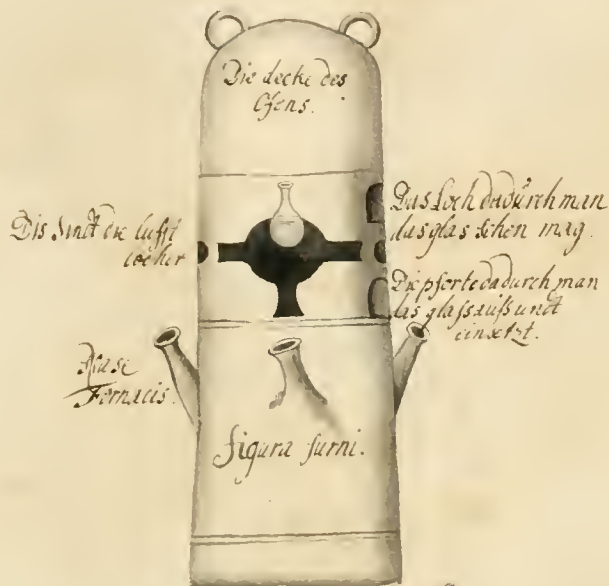 Die decke des
Ofens.
Dis Sindt die lufft
locher
Das Loch dadurch man
das glas sehen mag.
Die pforte dadurch man
das glass auss undt
einsetzt.
Nase
Fornacis.
figura furni.